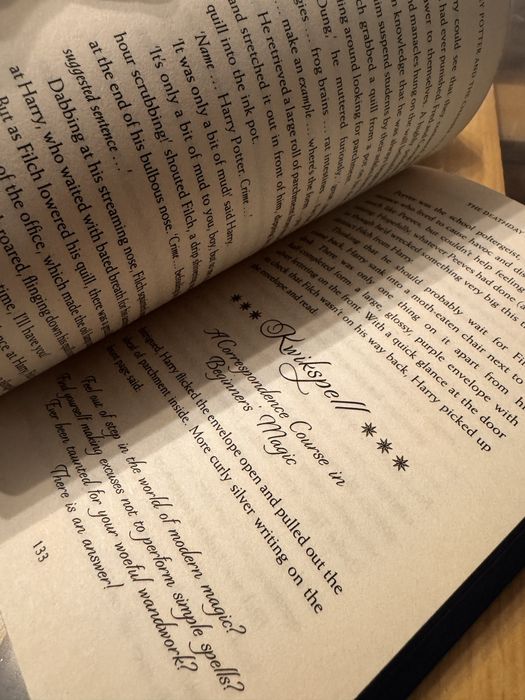 POTTER AND
could see that
had ever punished. Fred
to themselves. A
manacles hung on the
knowledge that he was
suspend students by
grabbed a quill from a
around looking for
Dung,' he muttered furiously,
frog brains ... rat
... make an example ... where's the
He retrieved a large roll of parchment
and stretched it out in front of him,
quill into the ink pot.
'Name ... Harry Potter. Crime ...
'It was only a bit of mud!' said Harry.
'It's only a bit of mud to you, boy, but
hour scrubbing!' shouted Filch, a drop
at the end of his bulbous nose. 'Crime ...
suggested sentence ...'
Dabbing at his streaming nose, Filch
at Harry, who waited with bated breath for
But as Filch lowered his quill, there was
of the office, which made the oil
roared, flinging down his
time, I'll have you
THE DEATHDAY
Peeves was the school poltergeist,
who lived to cause havoc and
like Peeves, but couldn't help feeling
Hopefully, whatever Peeves had done
Peeves had wrecked something very big this
Filch from Harry.
Thinking that he should probably wait for
back, Harry sank into a moth-eaten chair next to
There was only one thing on it apart from
completed form: a large, glossy, purple envelope with
silver lettering on the front. With a quick glance at the door
to check that Filch wasn't on his way back, Harry picked up
the envelope and read:
*** Kwikspell ***
A Correspondence Course in
Beginners' Magic
Intrigued, Harry flicked the envelope open and pulled out the
sheaf of parchment inside. More curly silver writing on the
front page said:
Feel out of step in the world of modern magic?
Find yourself making excuses not to perform simple spells?
Ever been taunted for your woeful wandwork?
There is an answer!
133